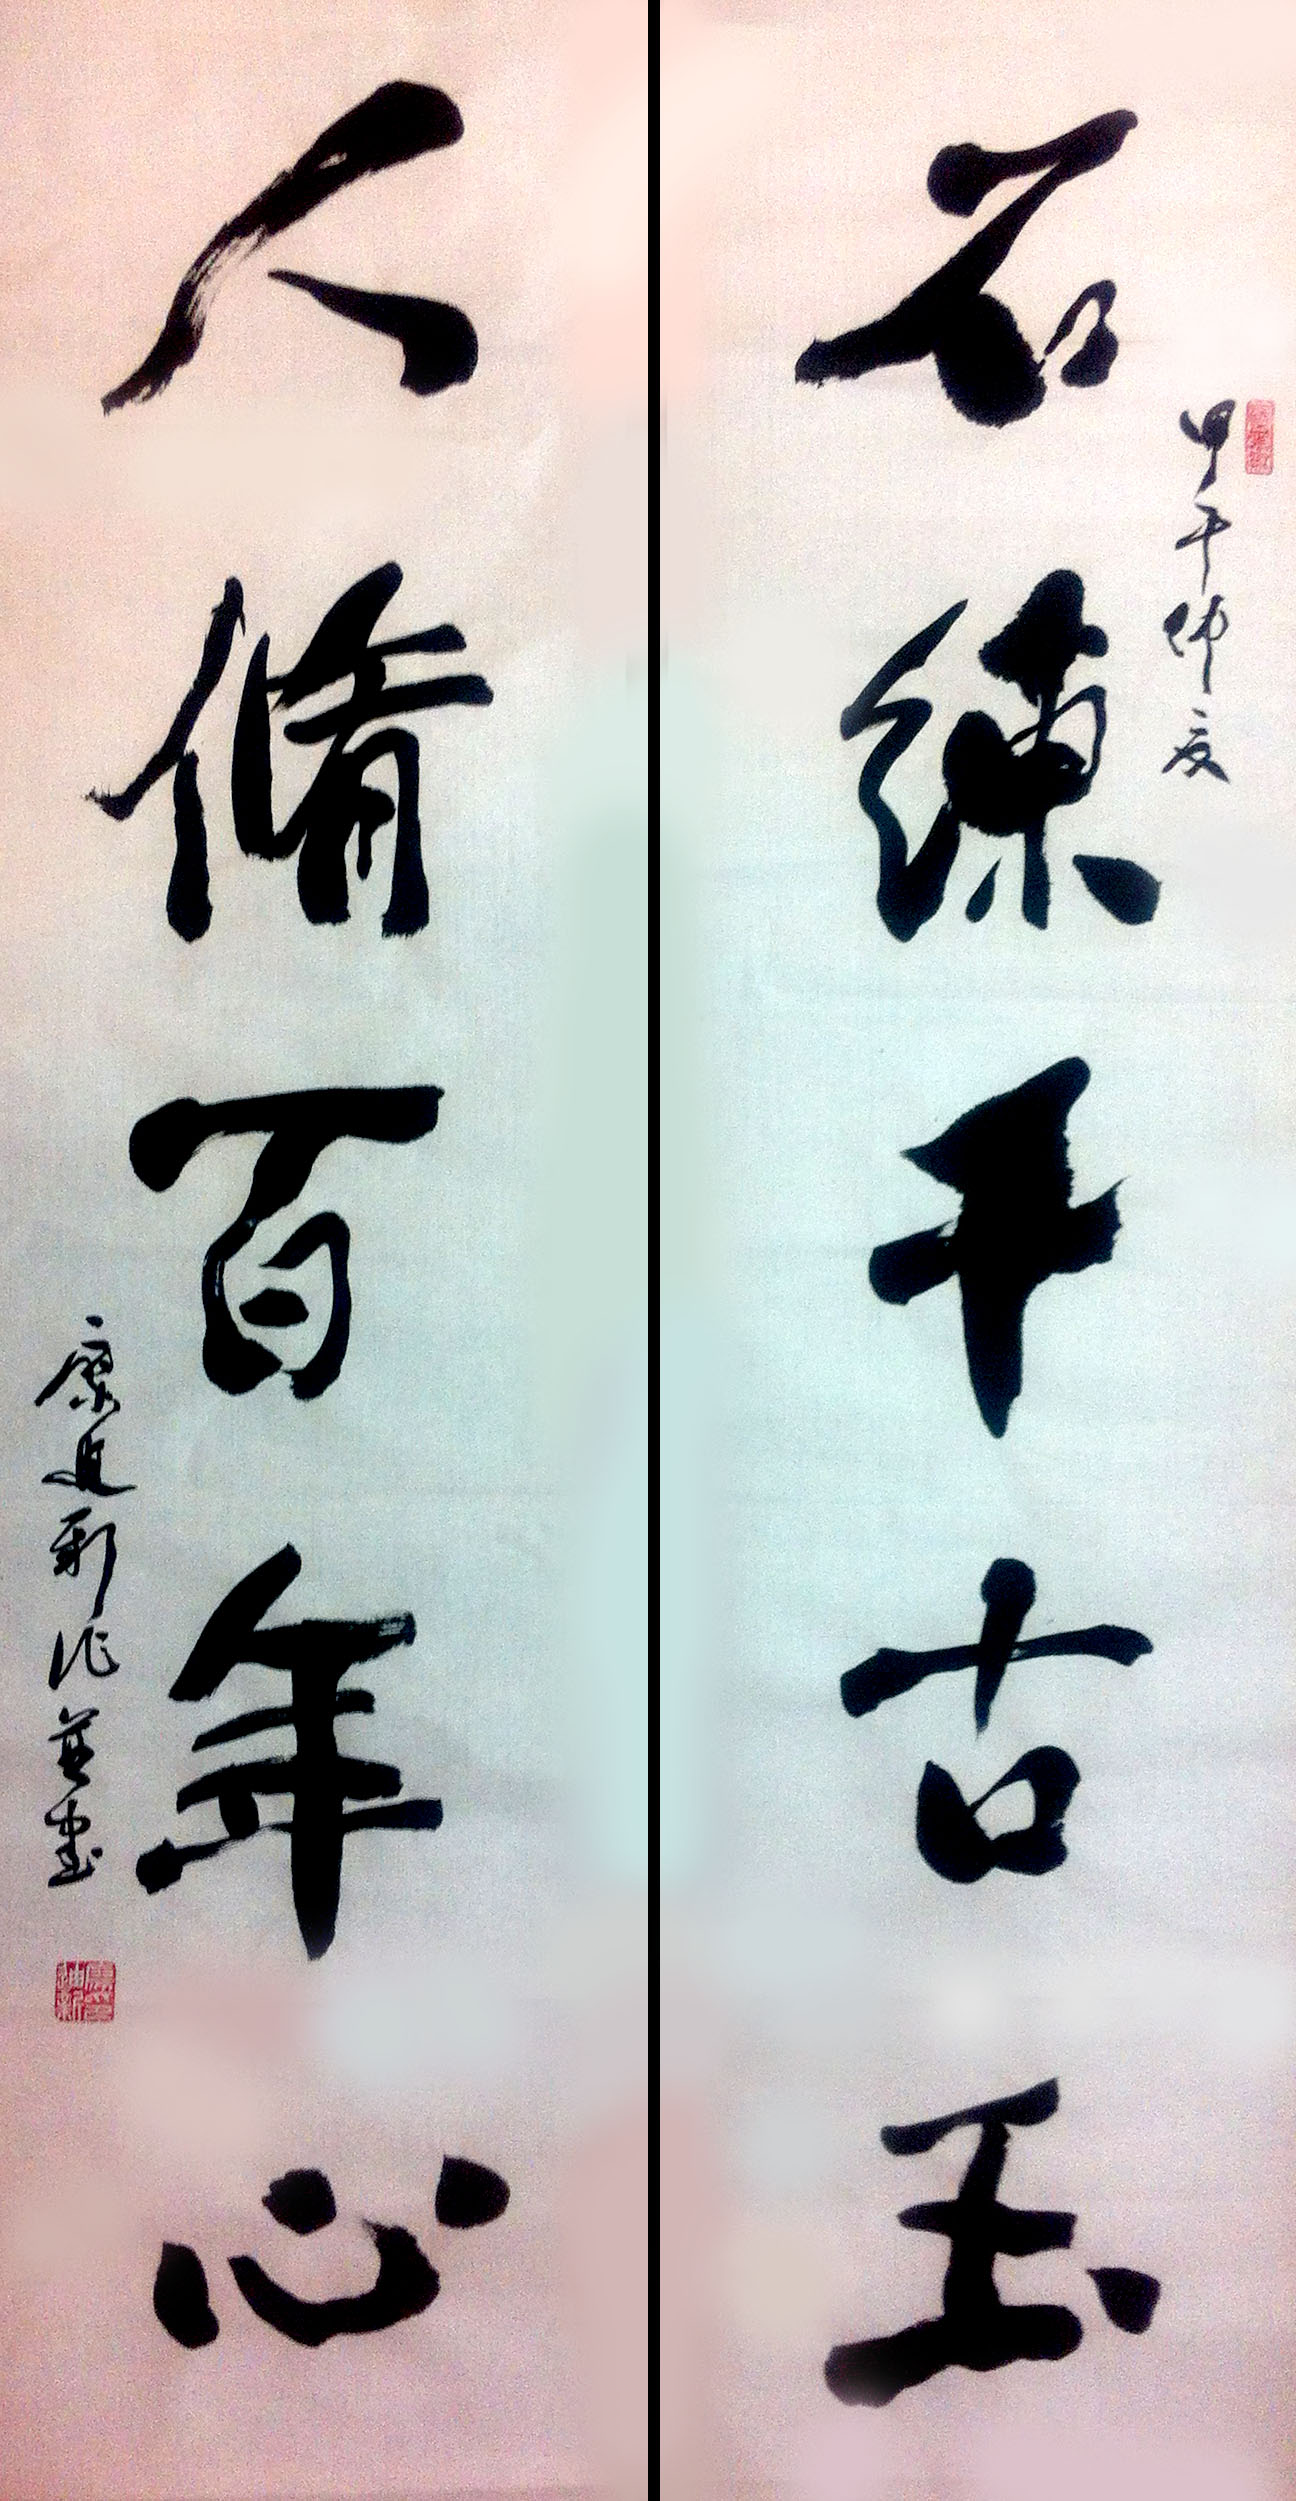 石練千古玉
甲午仲夏
人脩百年心
康進新作並書